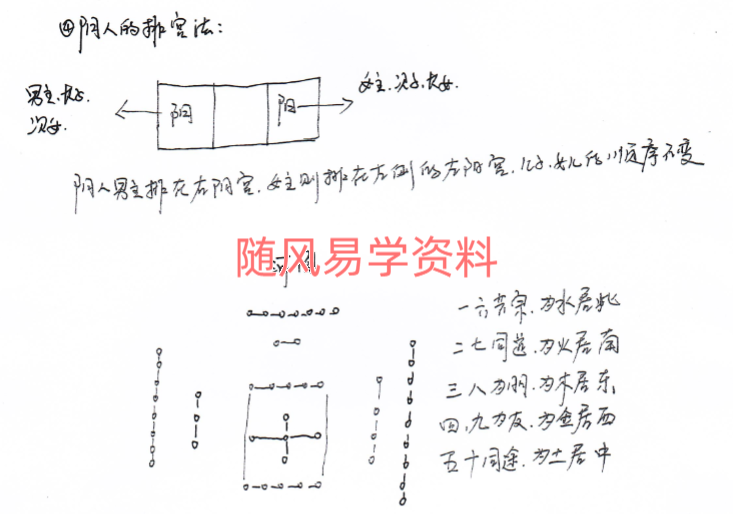 ④阴人的排宫法:
男主.长子.
次女.
阴
阳
女主.次子.长女.
阴人男主排在右阴宫.女主则排在左侧的左阳宫.儿子.女儿依顺序不变
随风易学资料
河图
一六共宗.为水居北
二七同道.为火居南
三八为朋.为木居东
四.九为友.为金居西
五十同途.为土居中